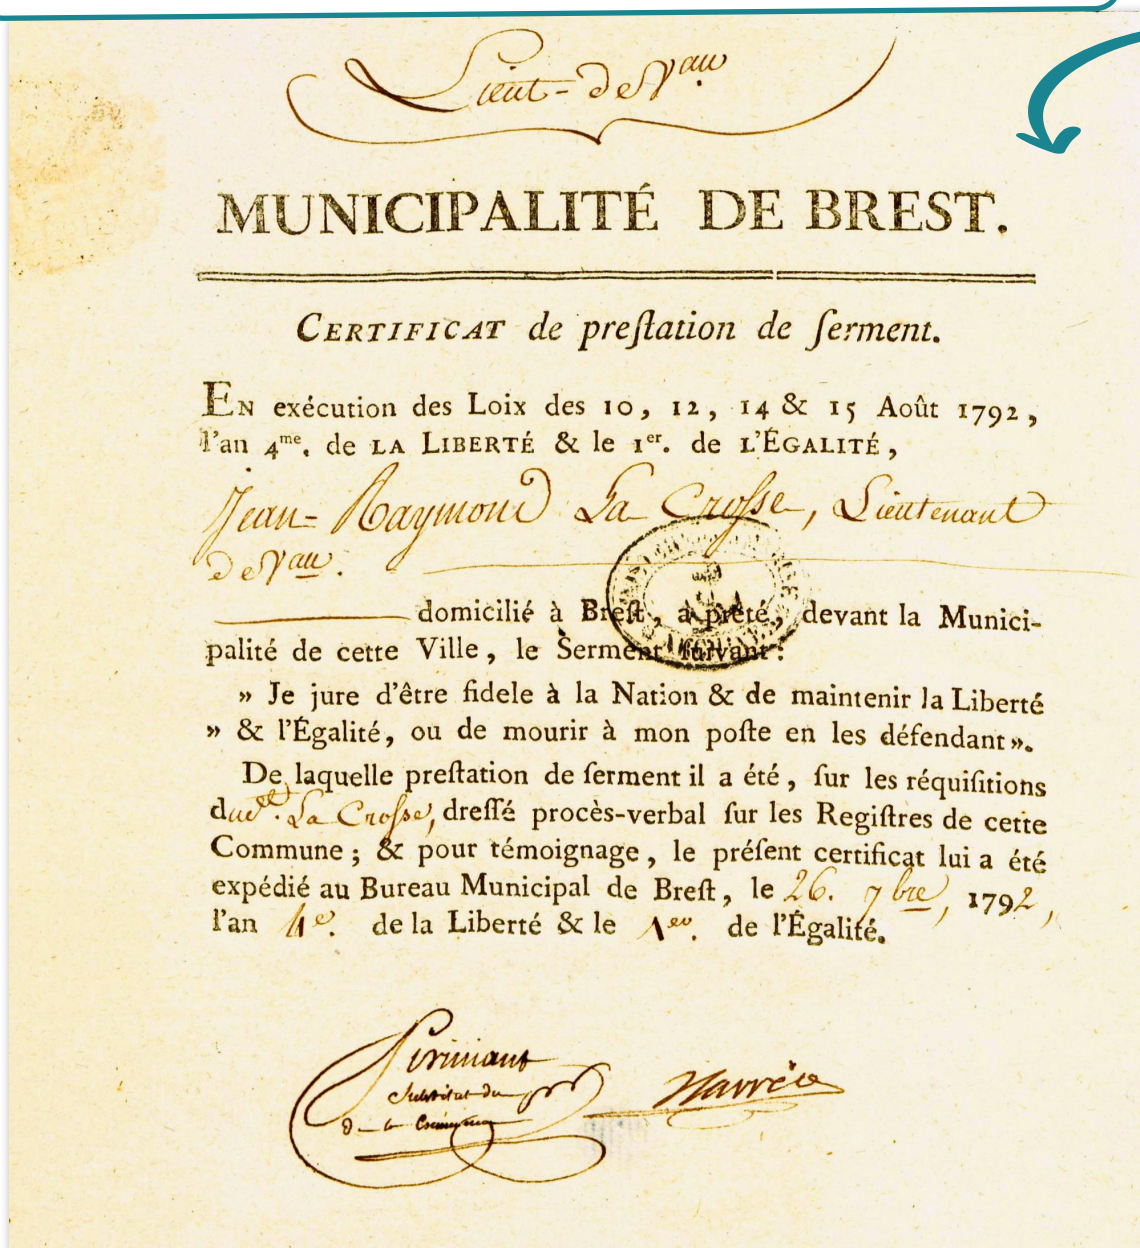 Lieut=de Vau.
MUNICIPALITÉ DE BREST.
CERTIFICAT de preſtation de ſerment.
EN exécution des Loix des 10, 12, 14 & 15 Août 1792,
l'an 4me. de LA LIBERTÉ & le 1er. de L'ÉGALITÉ,
Jean=Raymond La Croſse, Lieutenant
de Vau.
domicilié à Breſt, a prêté, devant la Munici-
palité de cette Ville, le Serment ſuivant:
» Je jure d'être fidele à la Nation & de maintenir la Liberté
» & l'Égalité, ou de mourir à mon poſte en les défendant».
De laquelle preſtation de ſerment il a été, ſur les réquiſitions
dudt. La Croſse, dreſſé procès-verbal ſur les Regiſtres de cette
Commune; & pour témoignage, le préſent certificat lui a été
expédié au Bureau Municipal de Breſt, le 26. 7bre, 1792,
l'an 4e. de la Liberté & le 1er. de l'Égalité.
Substitut du